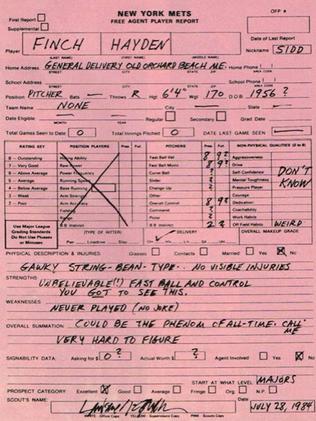 NEW YORK METS
FREE AGENT PLAYER REPORT
First Report
Supplemental
OFP #
Date of Last Report
Player FINCH HAYDEN Nickname SIDD
(LAST NAME) (FIRST NAME) (MIDDLE NAME)
Home Address GENERAL DELIVERY OLD ORCHARD BEACH ME. Home Phone ( )
STREET CITY STATE ZIP AREA CODE
School Address School Phone ( )
STREET CITY STATE ZIP AREA CODE
Position PITCHER Bats — Throws R Hgt 6'4" Wgt 170 D.O.B 1956 ?
Team Name NONE City State
Date Eligible Regular Secondary Grad. Date
Total Games Seen to Date 0 Total Innings Pitched 0 DATE LAST GAME SEEN
RATING KEY POSITION PLAYERS Pres. Fut. PITCHERS Pres. Fut. NON-PHYSICAL QUALITIES (2 to 8)
8 - Outstanding Hitting Ability Fast Ball Vel 8 9? Aggressiveness
7 - Very Good Raw Power Fast Ball Movt 8 9? Cool
6 - Above Average Power Frequency Curve Ball Self Confidence DON'T
5 - Average Running Speed Slider Mental Toughness KNOW
4 - Below Average Base Running Change Up Pressure Player
3 - Weak Arm Strength Other Courage
2 - Poor Overall Control 8 9? Dedication
Command Coachability
Poise Work Habits
Use Major League BB Instinct BB Instinct 2 2? Off Field Habits WEIRD
Grading Standards
Do Not Use Pluses
or Minuses
(TYPE OF HITTER) DELIVERY OVERALL MAKEUP GRADE
PHYSICAL DESCRIPTION & INJURIES Glasses: Contacts Married Yes No
GAWKY STRING-BEAN-TYPE. NO VISIBLE INJURIES
STRENGTHS UNBELIEVABLE(!!) FAST BALL AND CONTROL
YOU GOT TO SEE THIS.
WEAKNESSES
NEVER PLAYED (NO JOKE)
OVERALL SUMMATION COULD BE THE PHENOM OF ALL-TIME. CALL ME
VERY HARD TO FIGURE
SIGNABILITY DATA: Asking for $ 0? Actual Worth $ ? Agent Involved Yes No
START AT WHAT LEVEL MAJORS
PROSPECT CATEGORY Excellent Good Average Fringe Org. N.P.
SCOUT'S NAME Date JULY 28, 1984